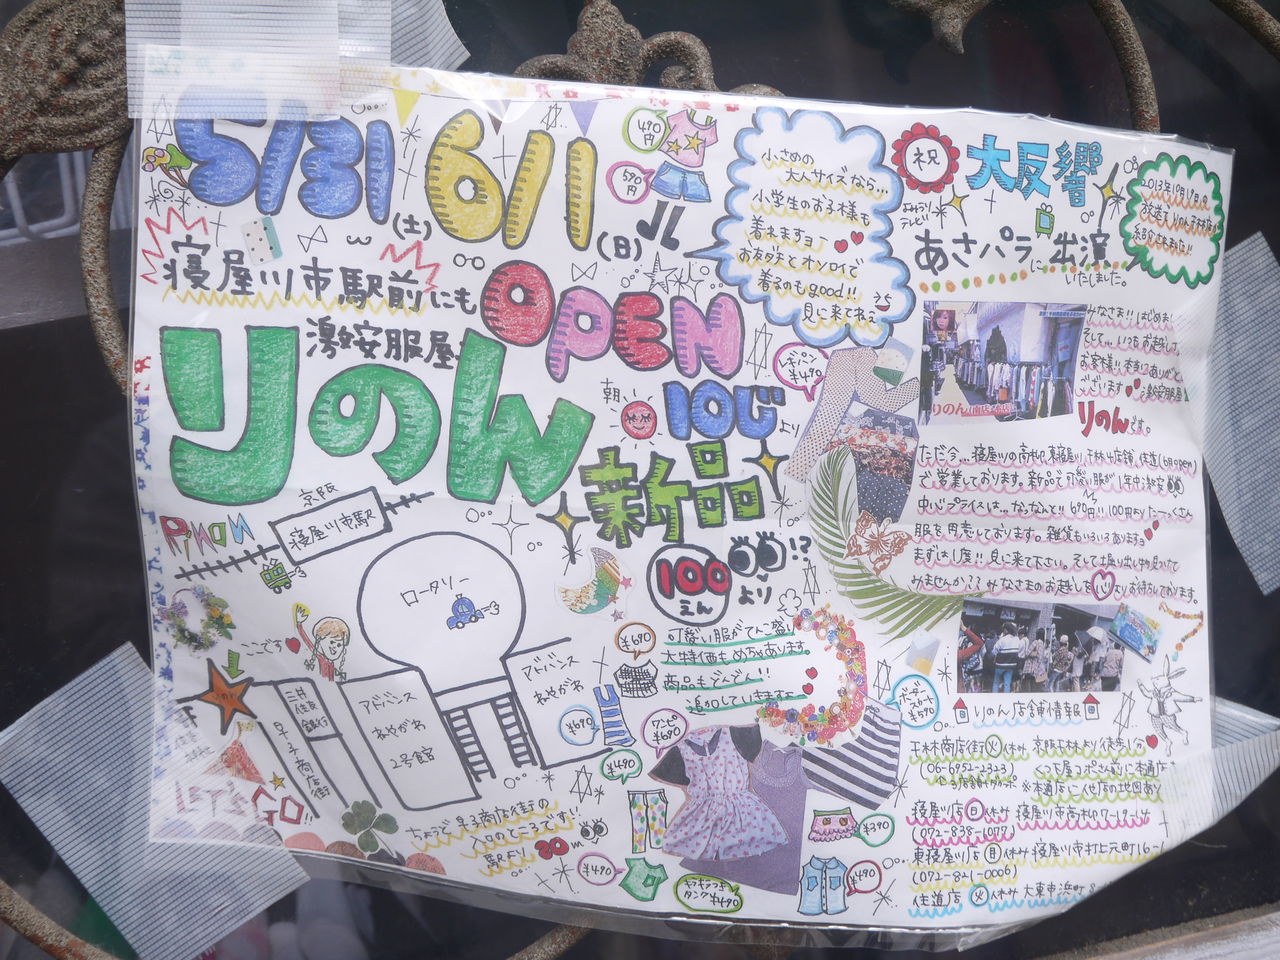 5/31(土)6/11(日)
寝屋川市駅前にも
激安服屋
OPEN
りのん
朝10じより
新品
100えんより!?
490円
590円
小さめの
大人サイズなら…
小学生のお子様も
着れますヨ
お友だちとオソロイで
着るのもgood!!
見に来てねえ
祝
大反響
2013年10月19日の
よみうりテレビ
あさパラに出演
いたしました。
レギパン
¥490
りのん
みなさま!!はじめまして
そして…いつもお越し
お客様!!本当にありがとう
ございます
激安服屋
りのんです。
ただ今…寝屋川の高柳、東寝屋川、千林、4店舗、住道(6月open)
で営業しております。新品で可愛い服が1年中激安
中心プライスは…なっなんと!!690円!!100円よりたーっくさん
服を用意しております。雑貨もいろいろあります
まずは1度!!見に来て下さい。そして掘り出し物見つけて
みませんか??みなさまのお越しを心よりお待ちしております。
京阪
寝屋川市駅
PINON
ロータリー
ここです
アドバンス
ねやがわ
アドバンス
ねやがわ
2号館
三井住友銀行
早子商店街
LET'S GO!!
ちょうど早子商店街の
入口のところです
駅より30m
可愛い服がてんこ盛り
大特価もめちゃあります。
商品もどんどん!!
追加していきますよ
¥690
¥690
¥490
ワンピ
¥690
ボーダー
スカート
¥590
¥390
¥490
¥490
キラキラつき
タンク ¥490
りのん店舗情報
千林商店街(火)休み
(06-6952-2323)
※本通店に他店の地図あり
寝屋川店(日)休み 寝屋川市高柳7-19-14
(072-838-1077)
東寝屋川店(月)休み 寝屋川市打上元町16-1
(072-821-0006)
住道店(火)休み 大東市浜町8